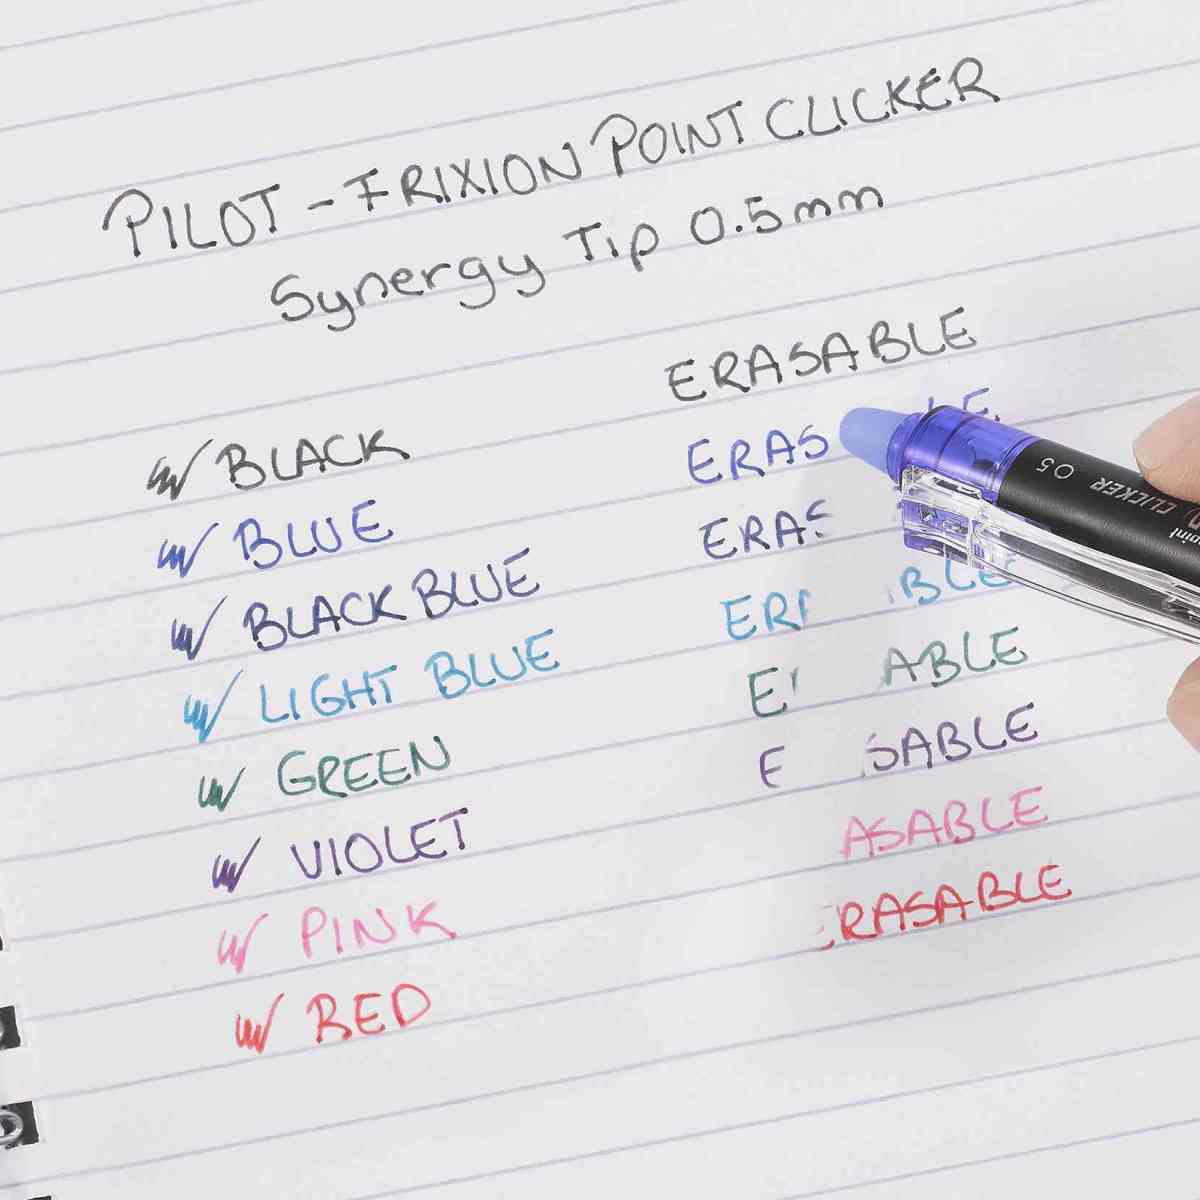 PILOT - FRIXION POINT CLICKER
Synergy Tip 0.5mm
ERASABLE
BLACK
ERAS LE
BLUE
ERAS
BLACK BLUE
ER BLE
LIGHT BLUE
E ABLE
GREEN
E SABLE
VIOLET
ASABLE
PINK
ERASABLE
RED
CLICKER 05
point